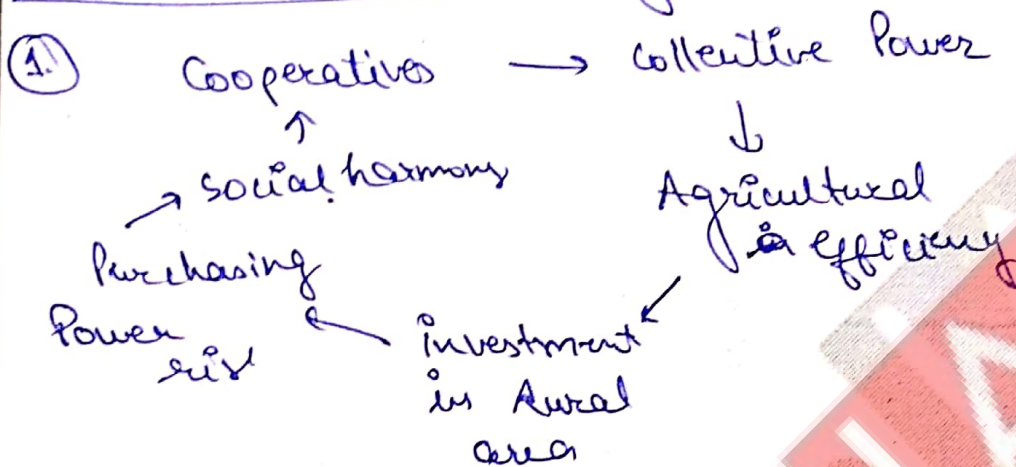 1. Cooperatives → Collective Power
↓
Agricultural efficiency
↙
investment
in Rural
area
←
Purchasing
Power
rise
→ Social harmony
↑